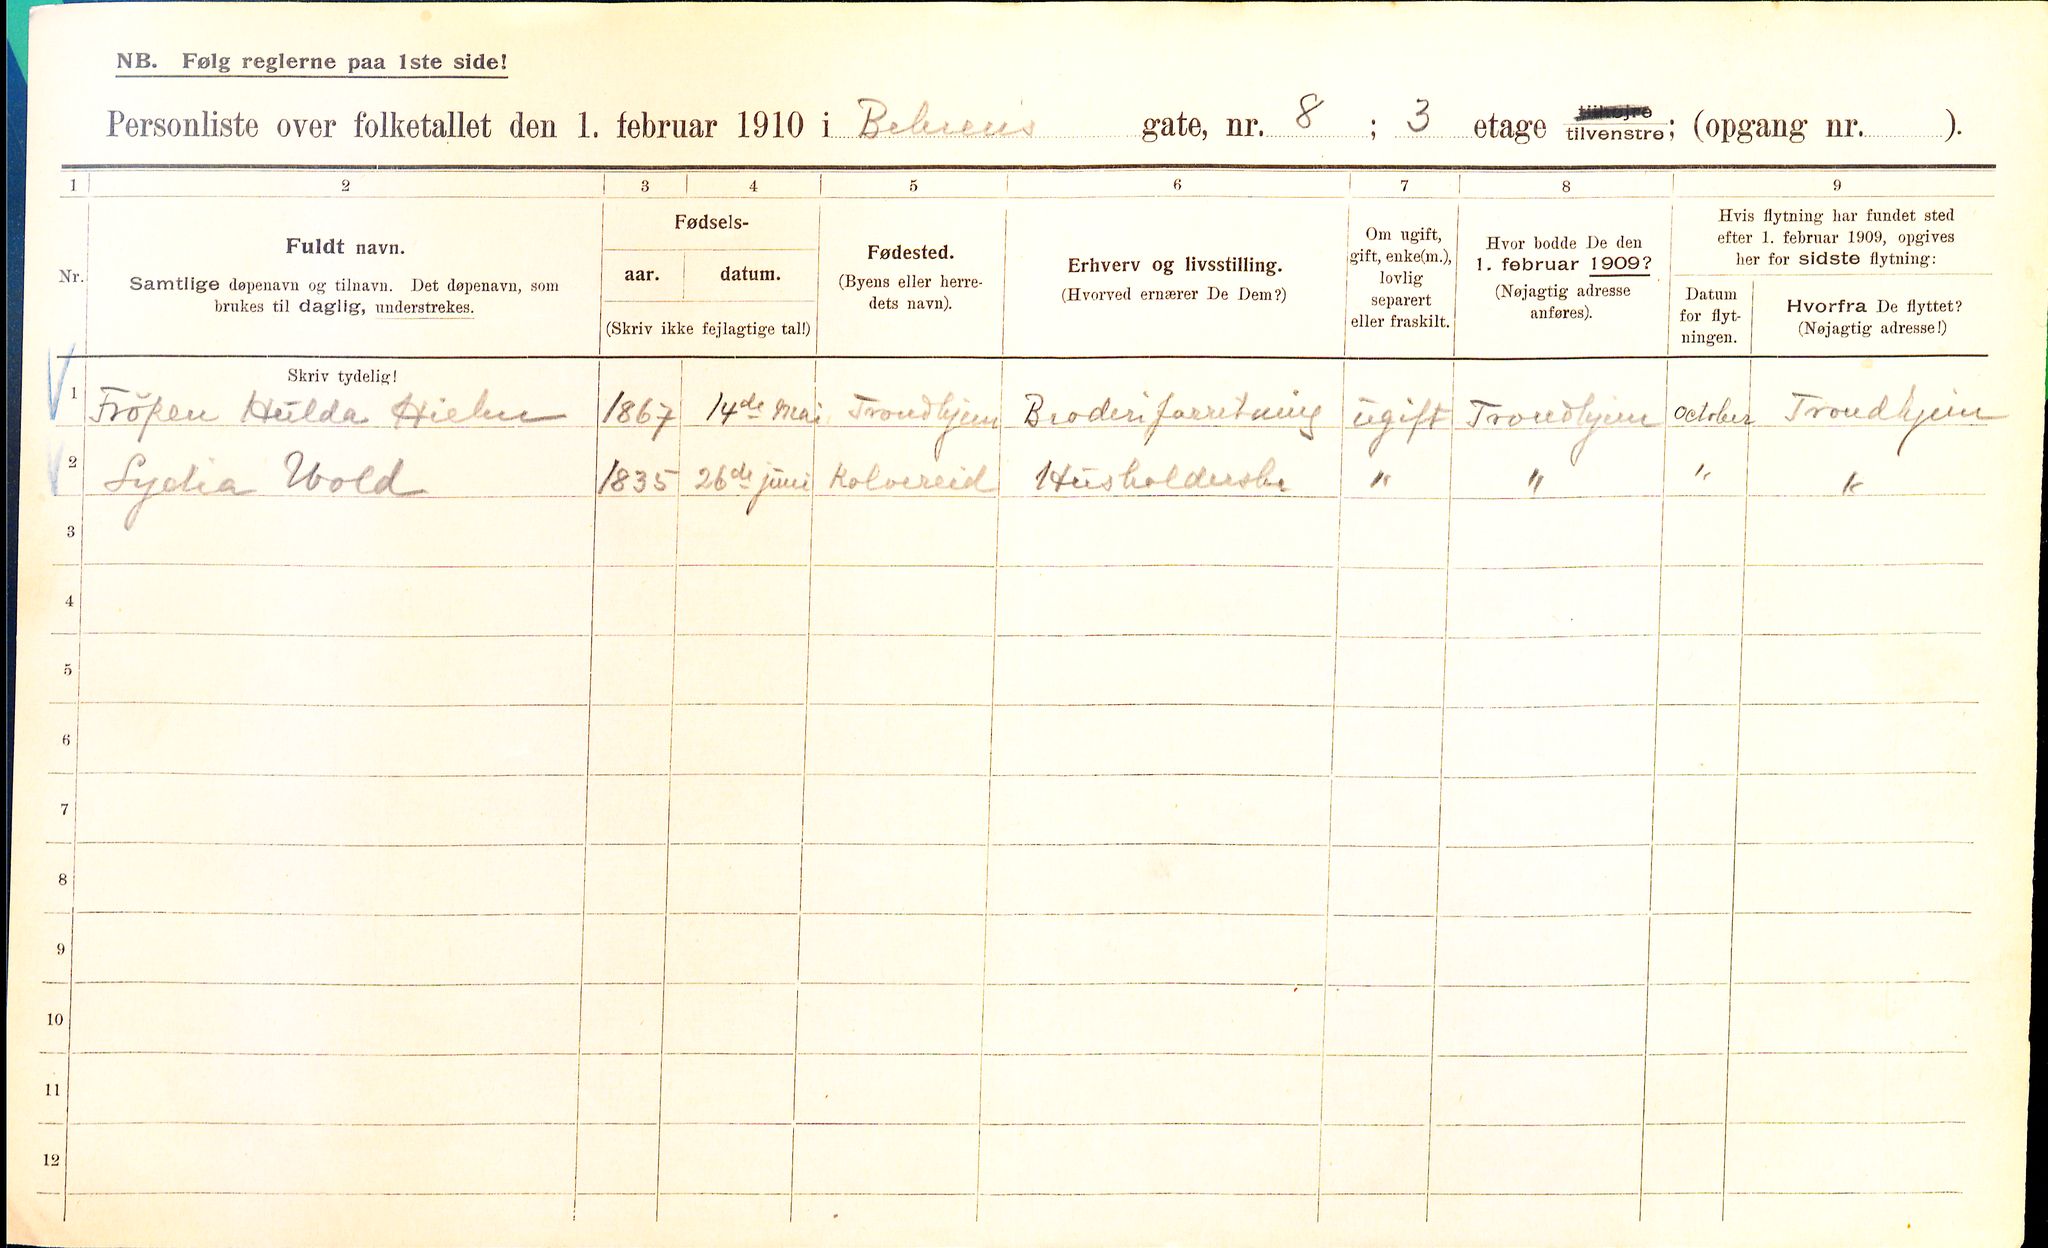 NB. Følg reglerne paa 1ste side!
Personliste over folketallet den 1. februar 1910 i Behrens gate, nr. 8 ; 3 etage tilhøjre tilvenstre; (opgang nr. ).
1 2 3 4 5 6 7 8 9
Nr.
Fuldt navn.
Samtlige døpenavn og tilnavn. Det døpenavn, som
brukes til daglig, understrekes.
Skriv tydelig!
Fødsels-
aar. datum.
(Skriv ikke fejlagtige tal!)
Fødested.
(Byens eller herre-
dets navn).
Erhverv og livsstilling.
(Hvorved ernærer De Dem?)
Om ugift,
gift, enke(m.),
lovlig
separert
eller fraskilt.
Hvor bodde De den
1. februar 1909?
(Nøjagtig adresse
anføres).
Hvis flytning har fundet sted
efter 1. februar 1909, opgives
her for sidste flytning:
Datum
for flyt-
ningen.
Hvorfra De flyttet?
(Nøjagtig adresse!)
1 Hulda 1867 14de Mai Trondhjem Broderiforretning ugift Trondhjem October Trondhjem
2 Lydia Wold 1835 26de juni Kolvereid Husholderske " " " "
3
4
5
6
7
8
9
10
11
12